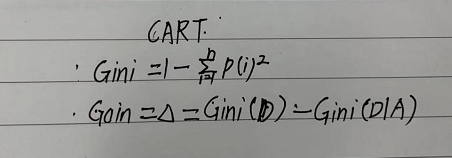 CART.
· Gini = 1 - \sum_{i=1}^{n} p(i)^2
· Gain = Δ = Gini(D) - Gini(D|A)